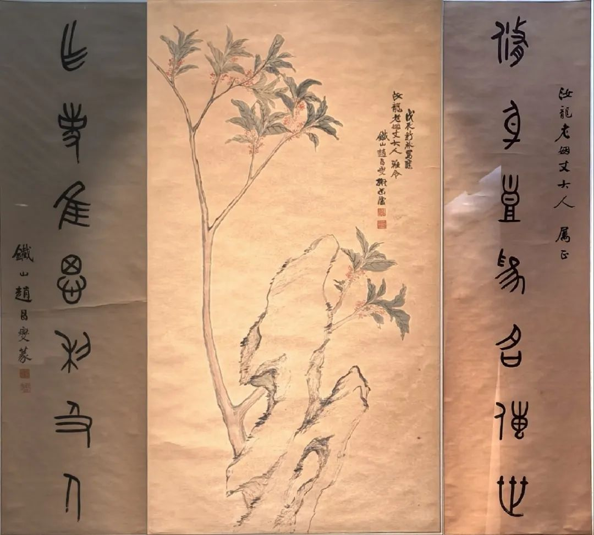 汝龍老姻丈大人 屬正
修身豈為名傳世
戊辰新秋寫應
汝龍老姻丈大人 雅令
鐵山趙昌燮
乍事隹思利及人
鐵山趙昌燮篆